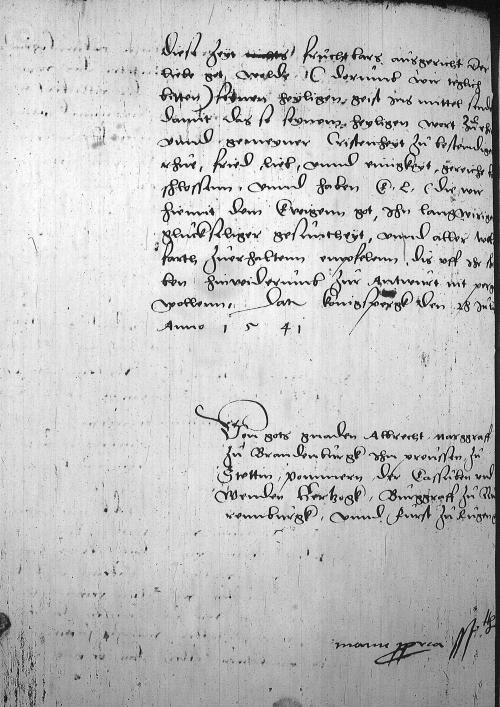 diese zeyt fruchtbars ausgericht der
liebe got, welde (derumb wir teglich
bitten) seinen heyligen geist ins mittel send
damit das so seynem heyligen wort zu eh
vnnd gemeyner Cristenheyt zu bestendige
rhue, fried, lieb, vnnd einigkeyt, gereiche
schlossann. vnnd haben E. L. (die wir
hiemit dem Ewigenn got, Ihn langwirige
gluckseliger gesuntheyt, vnnd aller wol
farth zuerhaltenn empfelenn, dis vff Ihr
ben hinwiderumb zur Antwurt nit
wollenn. Dat. königspergk den 28
Anno 1 5 41
Von gots gnaden Albrecht marggraff
zu Brandenburgk Ihn preussen, zu
Stettin, pommern der Cassuben vnd
Wenden Hertzogk, Burggraff zu Nu
remburgk, vnnd furst zu Rugen
manu ppria sst.